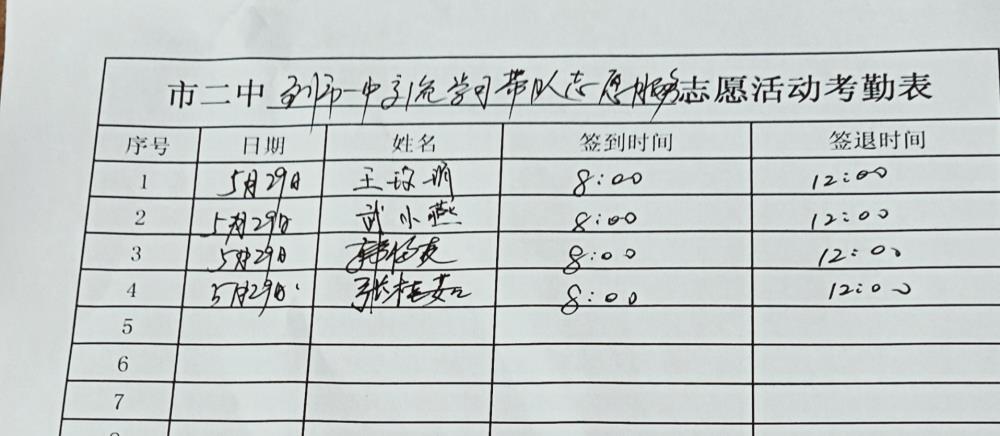 市二中到市一中交流学习带队志愿服务志愿活动考勤表
序号 日期 姓名 签到时间 签退时间
1 5月29日 王玫玥 8:00 12:00
2 5月29日 武小燕 8:00 12:00
3 5月29日 8:00 12:00
4 5月29日 张桂茹 8:00 12:00
5
6
7